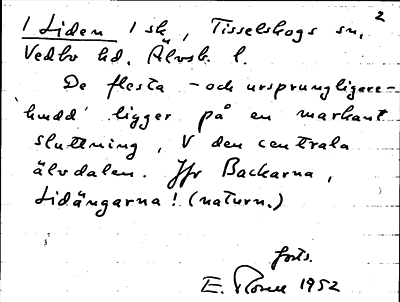 2
1 Liden 1 sk, Tisselskogs sn,
Vedbo hd, Älvsb. l.
De flesta - och ursprungligare -
hudd' ligger på en markant
sluttning, V den centrala
älvdalen. Jfr Backarna,
Lidängarna! (naturn.)
forts.
E. 1952